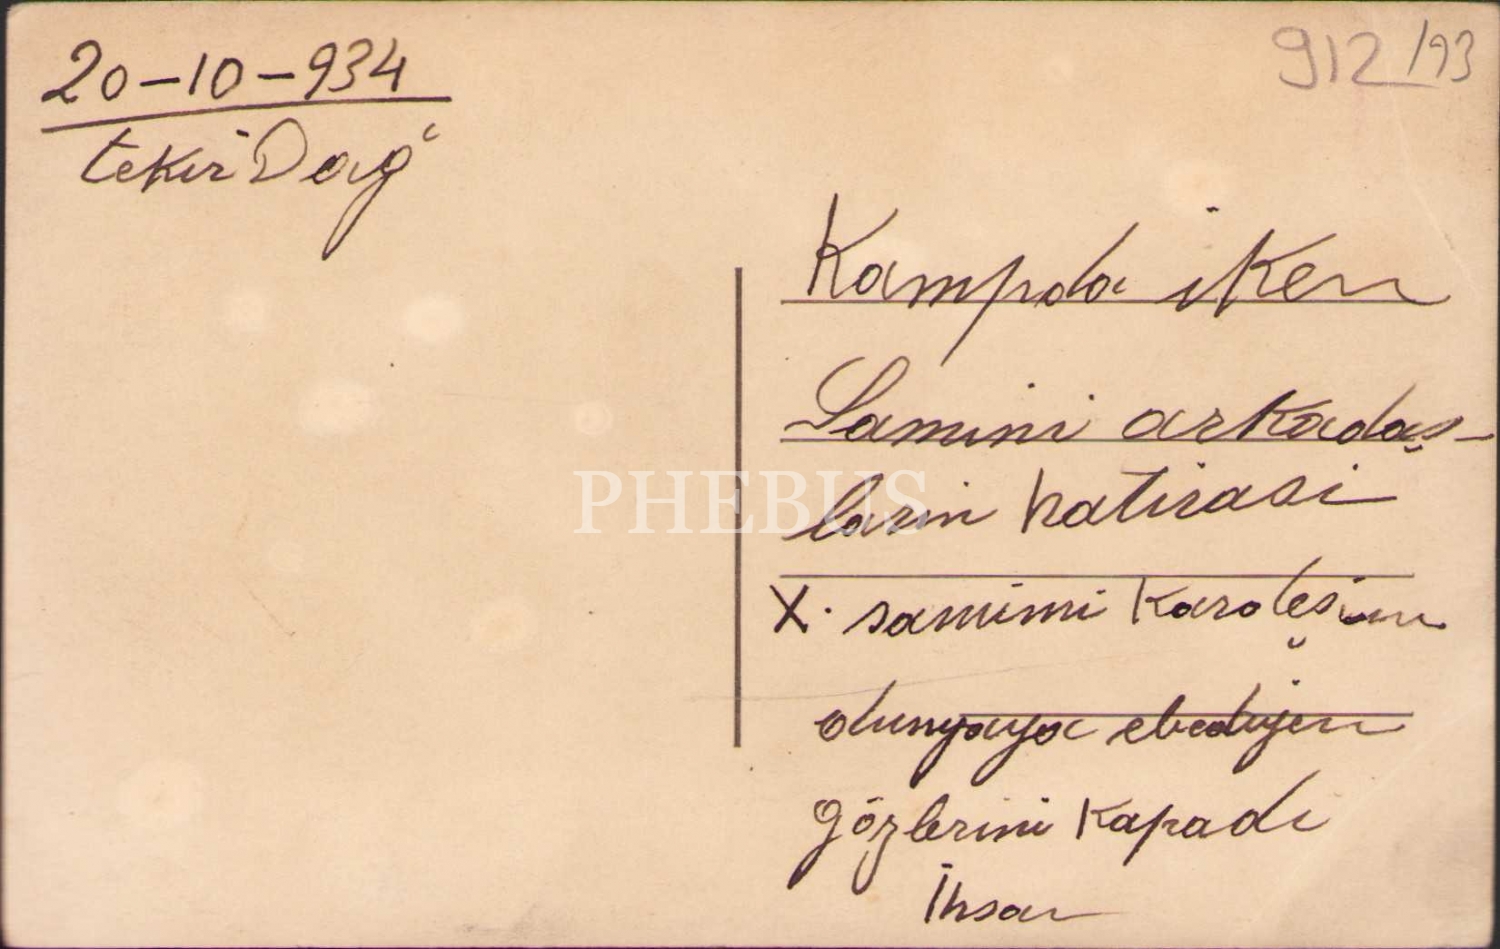 20-10-934
tekir Dağ
912/93
Kampda iken
Samimi arkadaş-
ların hatirasi
PHEBUS
X. samimi kardeşim
dunyaya ebediyen
gözlerini kapadi
İhsan